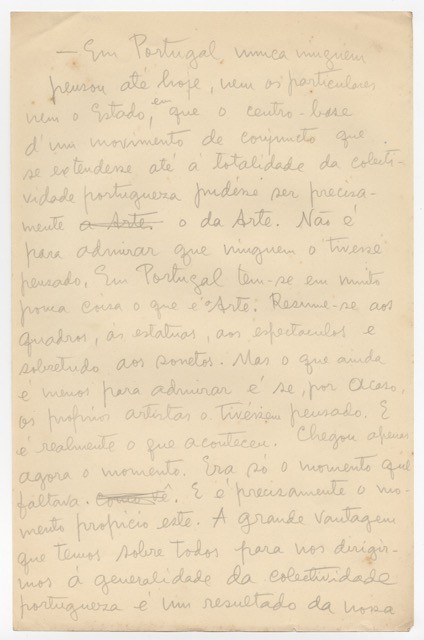 — Em Portugal, nunca ninguem
pensou até hoje, nem os particulares
nem o Estado, em que o centro-base
d'um movimento de conjuncto que
se extendesse até á totalidade da colecti-
vidade portugueza pudésse ser precisa-
mente a Arte. o da Arte. Não é
para admirar que ninguem o tivesse
pensado. Em Portugal tem-se em muito
pouca coisa o que é Arte. Resume-se aos
quadros, ás estatuas, aos espectaculos e
sobretudo aos sonetos. Mas o que ainda
é menos para admirar é se, por acaso,
os proprios artistas o tivéssem pensado. E
é realmente o que aconteceu. Chegou apenas
agora o momento. Era só o momento que
faltava. E é precisamente o mo-
mento propicio este. A grande vantagem
que temos sobre todos para nos dirigir-
mos á generalidade da colectividade
portugueza é um resultado da nossa